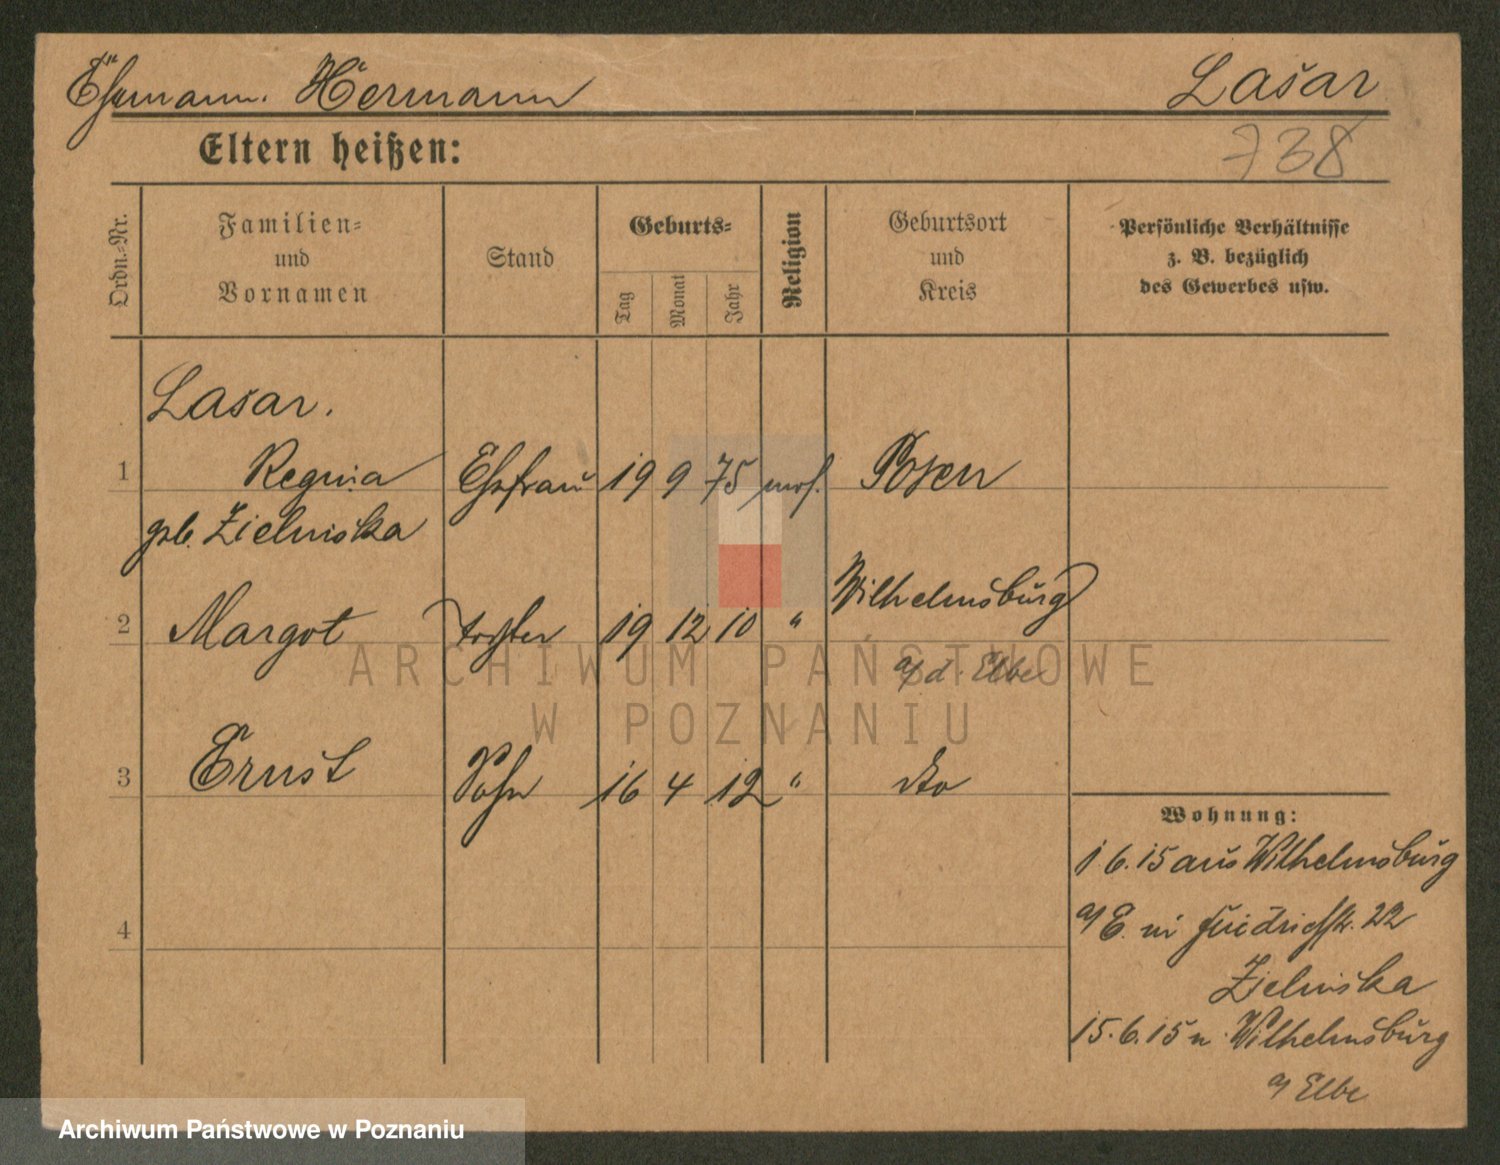 Ehemann. Hermann Lasar
Eltern heißen: 738
Ordn.=Nr. Familien= und Vornamen Stand Geburts= Tag Monat Jahr Religion Geburtsort und Kreis Persönliche Verhältnisse z. B. bezüglich des Gewerbes usw.
Lasar.
1 Regina Ehefrau 19 9 75 mos. Posen
geb. Zielinska
2 Margot tochter 19 12 10 " Wilhelmsburg
a/d. Elbe
3 Ernst Sohn 16 4 12 " dto
4
Wohnung:
1.6.15 aus Wilhelmsburg
a/E. in Friedrichstr. 22
Zielinska
15.6.15 n. Wilhelmsburg
a/Elbe
ARCHIWUM PAŃSTWOWE
W POZNANIU
Archiwum Państwowe w Poznaniu